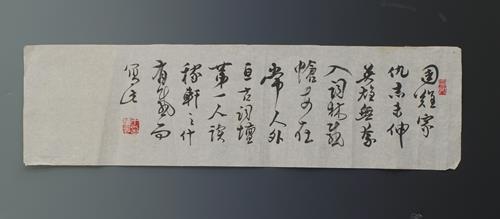 国难家
仇志未伸
英雄无奈
入词林
在
常人外
亘古词坛
第一人读
稼轩之什
有感而
写此